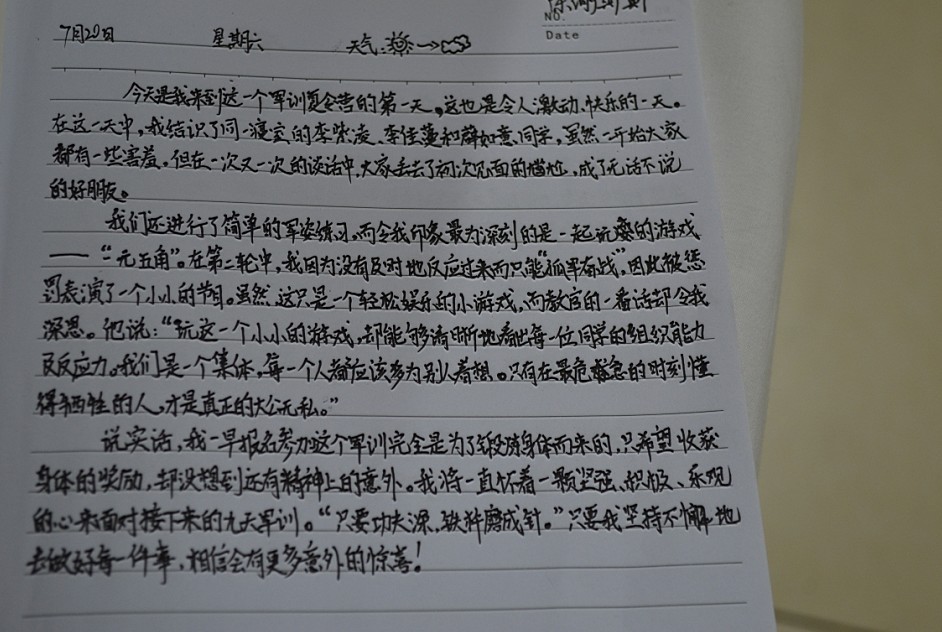 NO.
Date
7月20日 星期六 天气:
今天是我来到这一个军训夏令营的第一天。这也是令人激动、快乐的一天。
在这一天中,我结识了同一寝室的李紫凌、李佳蓬和薛如意同学,虽然一开始大家
都有一些害羞。但在一次又一次的谈话中,大家丢去了初次见面的尴尬,成了无话不说
的好朋友。
我们还进行了简单的军姿练习。而令我印象最为深刻的是一起玩耍的游戏
——“一元五角”。在第二轮中,我因为没有及时地反应过来而只能“孤军奋战”,因此被惩
罚表演了一个小小的节目。虽然,这只是一个轻松娱乐的小游戏,而教官的一番话却令我
深思。他说:“玩这一个小小的游戏,却能够清晰地看出每一位同学的组织能力
及反应力。我们是一个集体,每一个人都应该多为别人着想。只有在最危急的时刻懂
得牺牲的人,才是真正的大公无私。”
说实话,我一早报名参加这个军训完全是为了锻炼身体而来的,只希望收获
身体的奖励,却没想到还有精神上的意外。我将一直怀着一颗坚强、积极、乐观
的心来面对接下来的九天军训。“只要功夫深,铁杵磨成针。”只要我坚持不懈地
去做好每一件事,相信会有更多意外的惊喜!